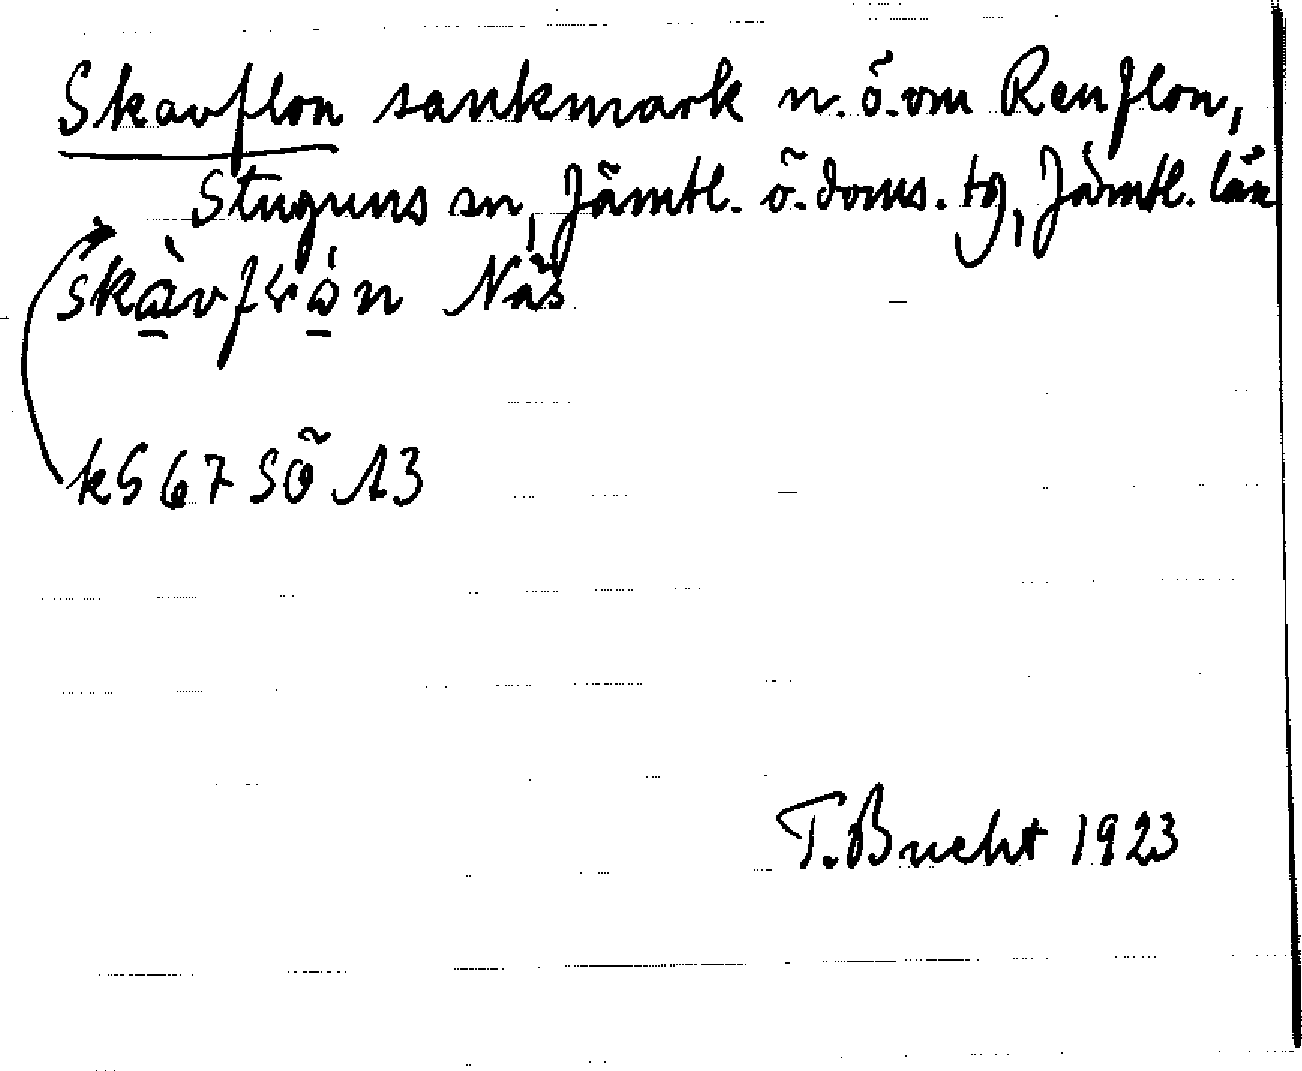 Skavflon sankmark n.ö.om Renflon,
Stuguns sn, Jämtl. ö. doms. tg, Jämtl. län
Näs
kS 67 SÖ A3
T. Bucht 1923